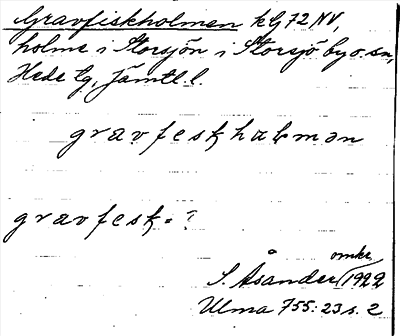 Gravfiskholmen kG72NV,
holme i Storsjön i Storsjö by o. sn,
Hede tg, Jämtl l.
gravfeskhalmən
gravfesk. ?
omkr
S. Åsander 1922
Ulma 755:23 s. 2